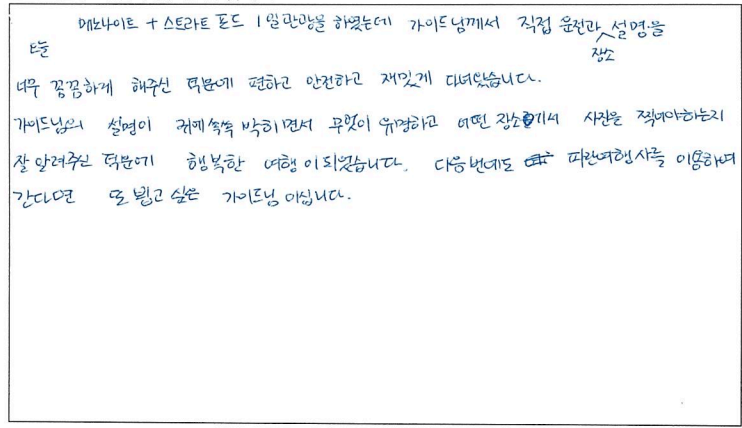 메노나이트 + 스트라트 포드 1일관광을 하였는데 가이드님께서 직접 운전과 장소 설명을
너무 꼼꼼하게 해주신 덕분에 편하고 안전하고 재밌게 다녀왔습니다.
가이드님의 설명이 귀에 쏙쏙 박히면서 무엇이 유명하고 어떤 장소에서 사진을 찍어야하는지
잘 알려주신 덕분에 행복한 여행이 되었습니다. 다음번에도 파란여행사를 이용하여
간다면 또 뵙고 싶은 가이드님 이십니다.